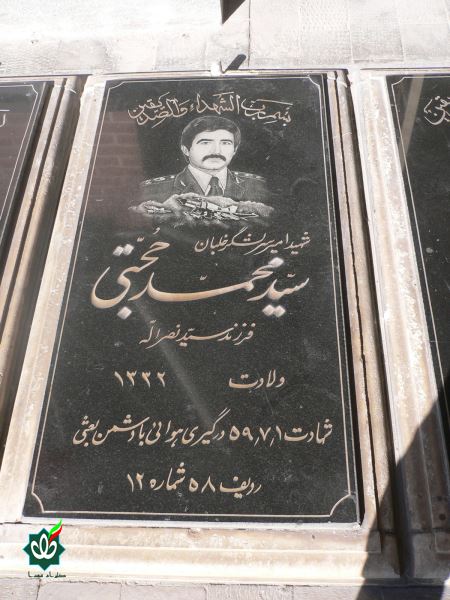 بسم رب الشهداء والصدیقین
شهید امیر سرلشگر خلبان
سیّد محمّد مُجتبی
فرزند سیّد نصراله
ولادت ۱۳۳۲
شهادت ۵۹٫۷٫۱ درگیری هوائی با دشمن بعثی
ردیف ۵۸ شماره ۱۲